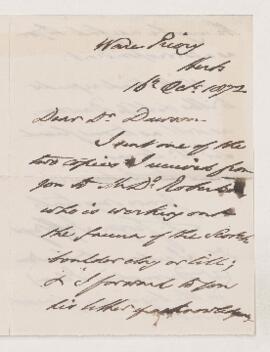 Ware Priory
Herts
18th Oct. 1872
Dear Dr. Dawson
I sent one of the
two copies I received from
you to Mr D. Robertson
who is working out
the fauna of the Scotch
boulder clay or till;
& I forward to you
his letter of acknowledgm